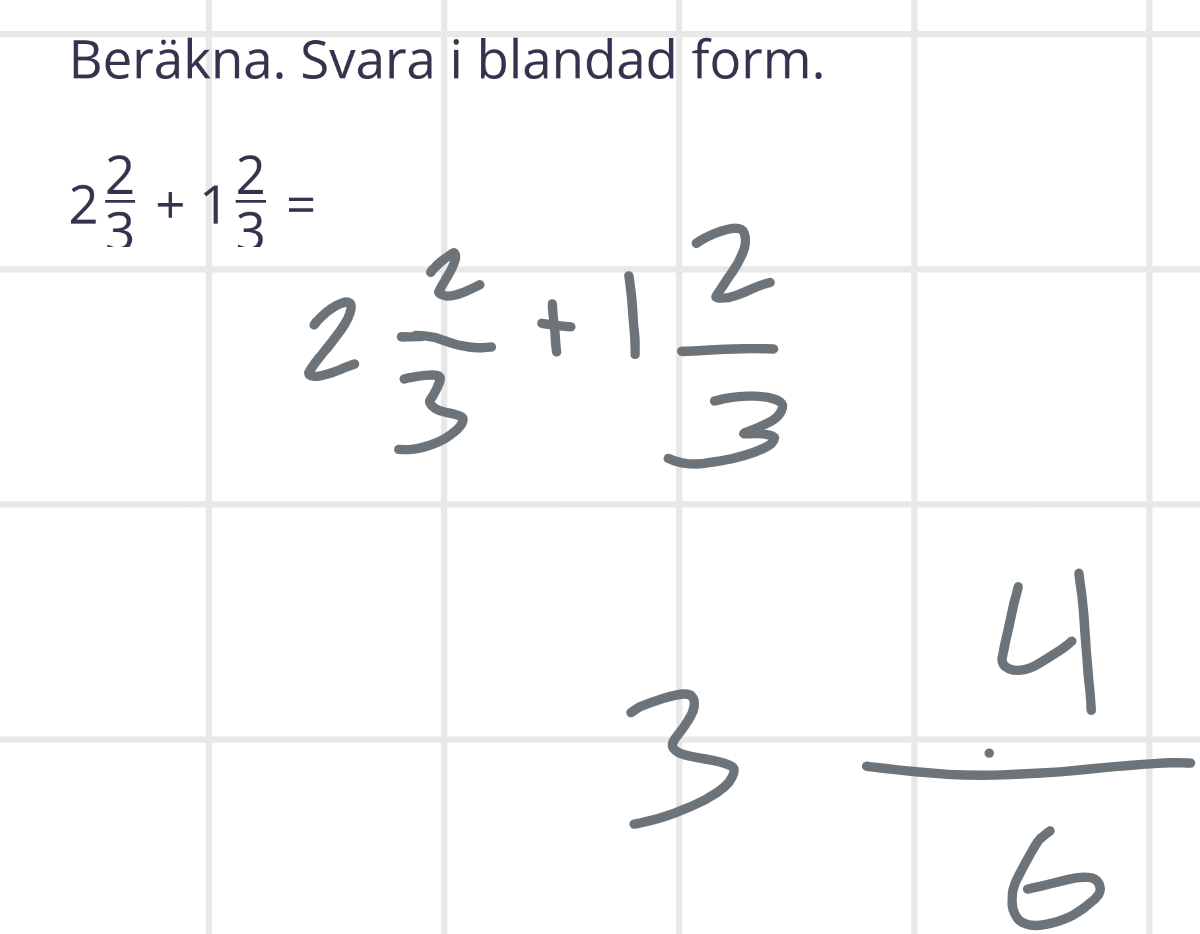 Beräkna. Svara i blandad form.
2 2/3 + 1 2/3 =
2 2/3 + 1 2/3
3 4/6